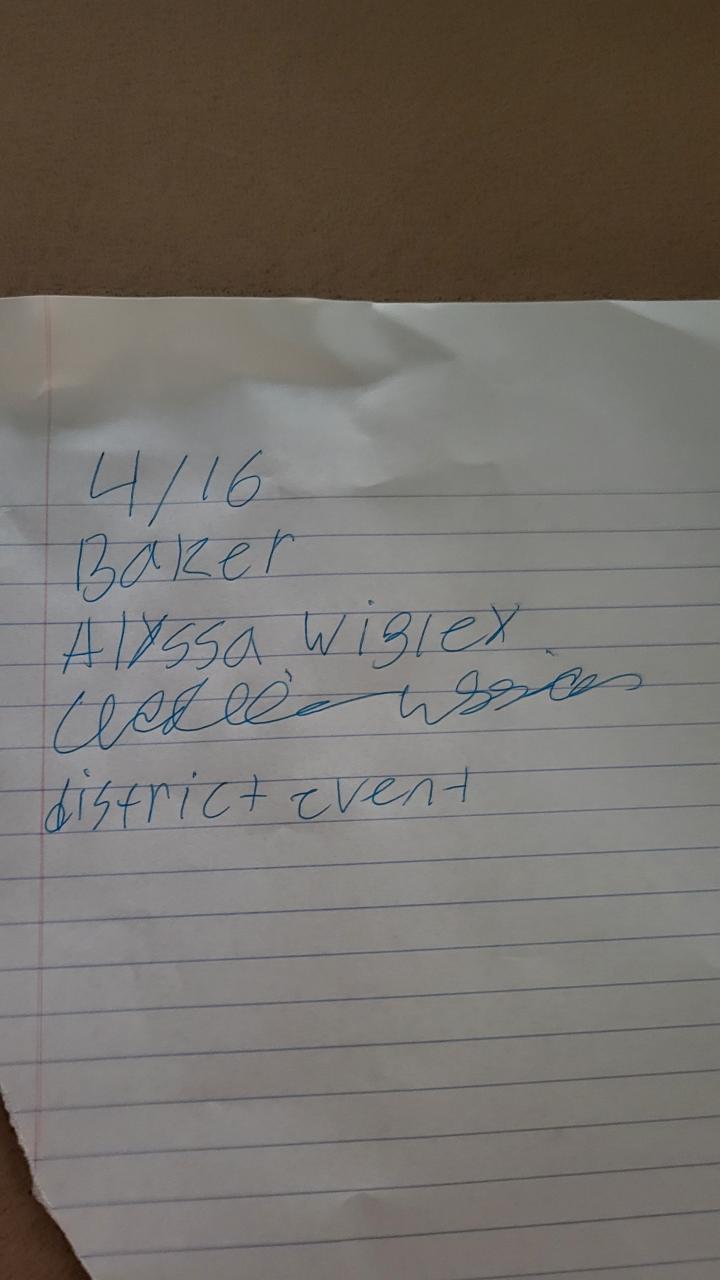 4/16
Baker
Alyssa Wigley
district event